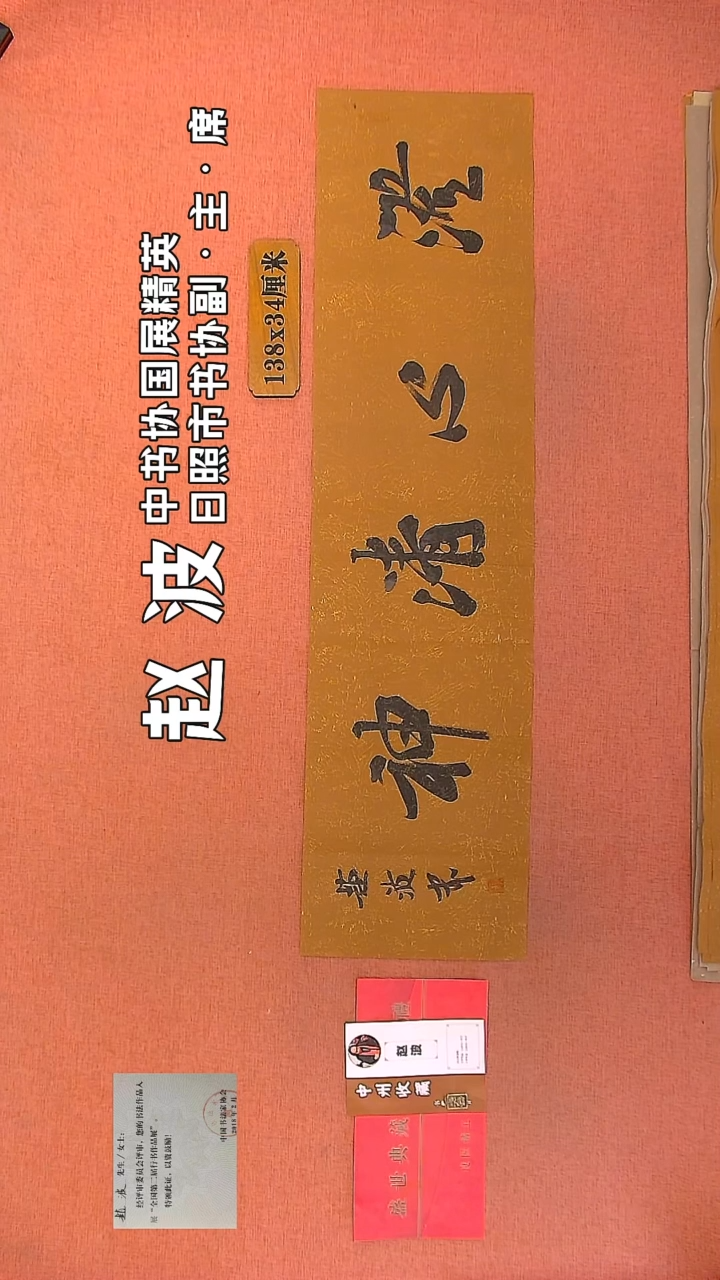 赵 波
中书协国展精英
日照市书协副·主·席
138x34厘米
澄心清神
波
赵波
中州收藏
盛世典藏
赵 波 先生/女士:
经评审委员会评审,您的书法作品入
展“全国第二届行书作品展”。
特颁此证,以资鼓励!
中国书法家协会